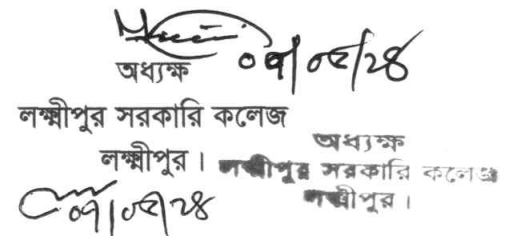 ০৭/০৫/২৪
অধ্যক্ষ
লক্ষ্মীপুর সরকারি কলেজ
লক্ষ্মীপুর।
০৭/০৫/২৪
অধ্যক্ষ
লক্ষ্মীপুর সরকারি কলেজ
লক্ষ্মীপুর।